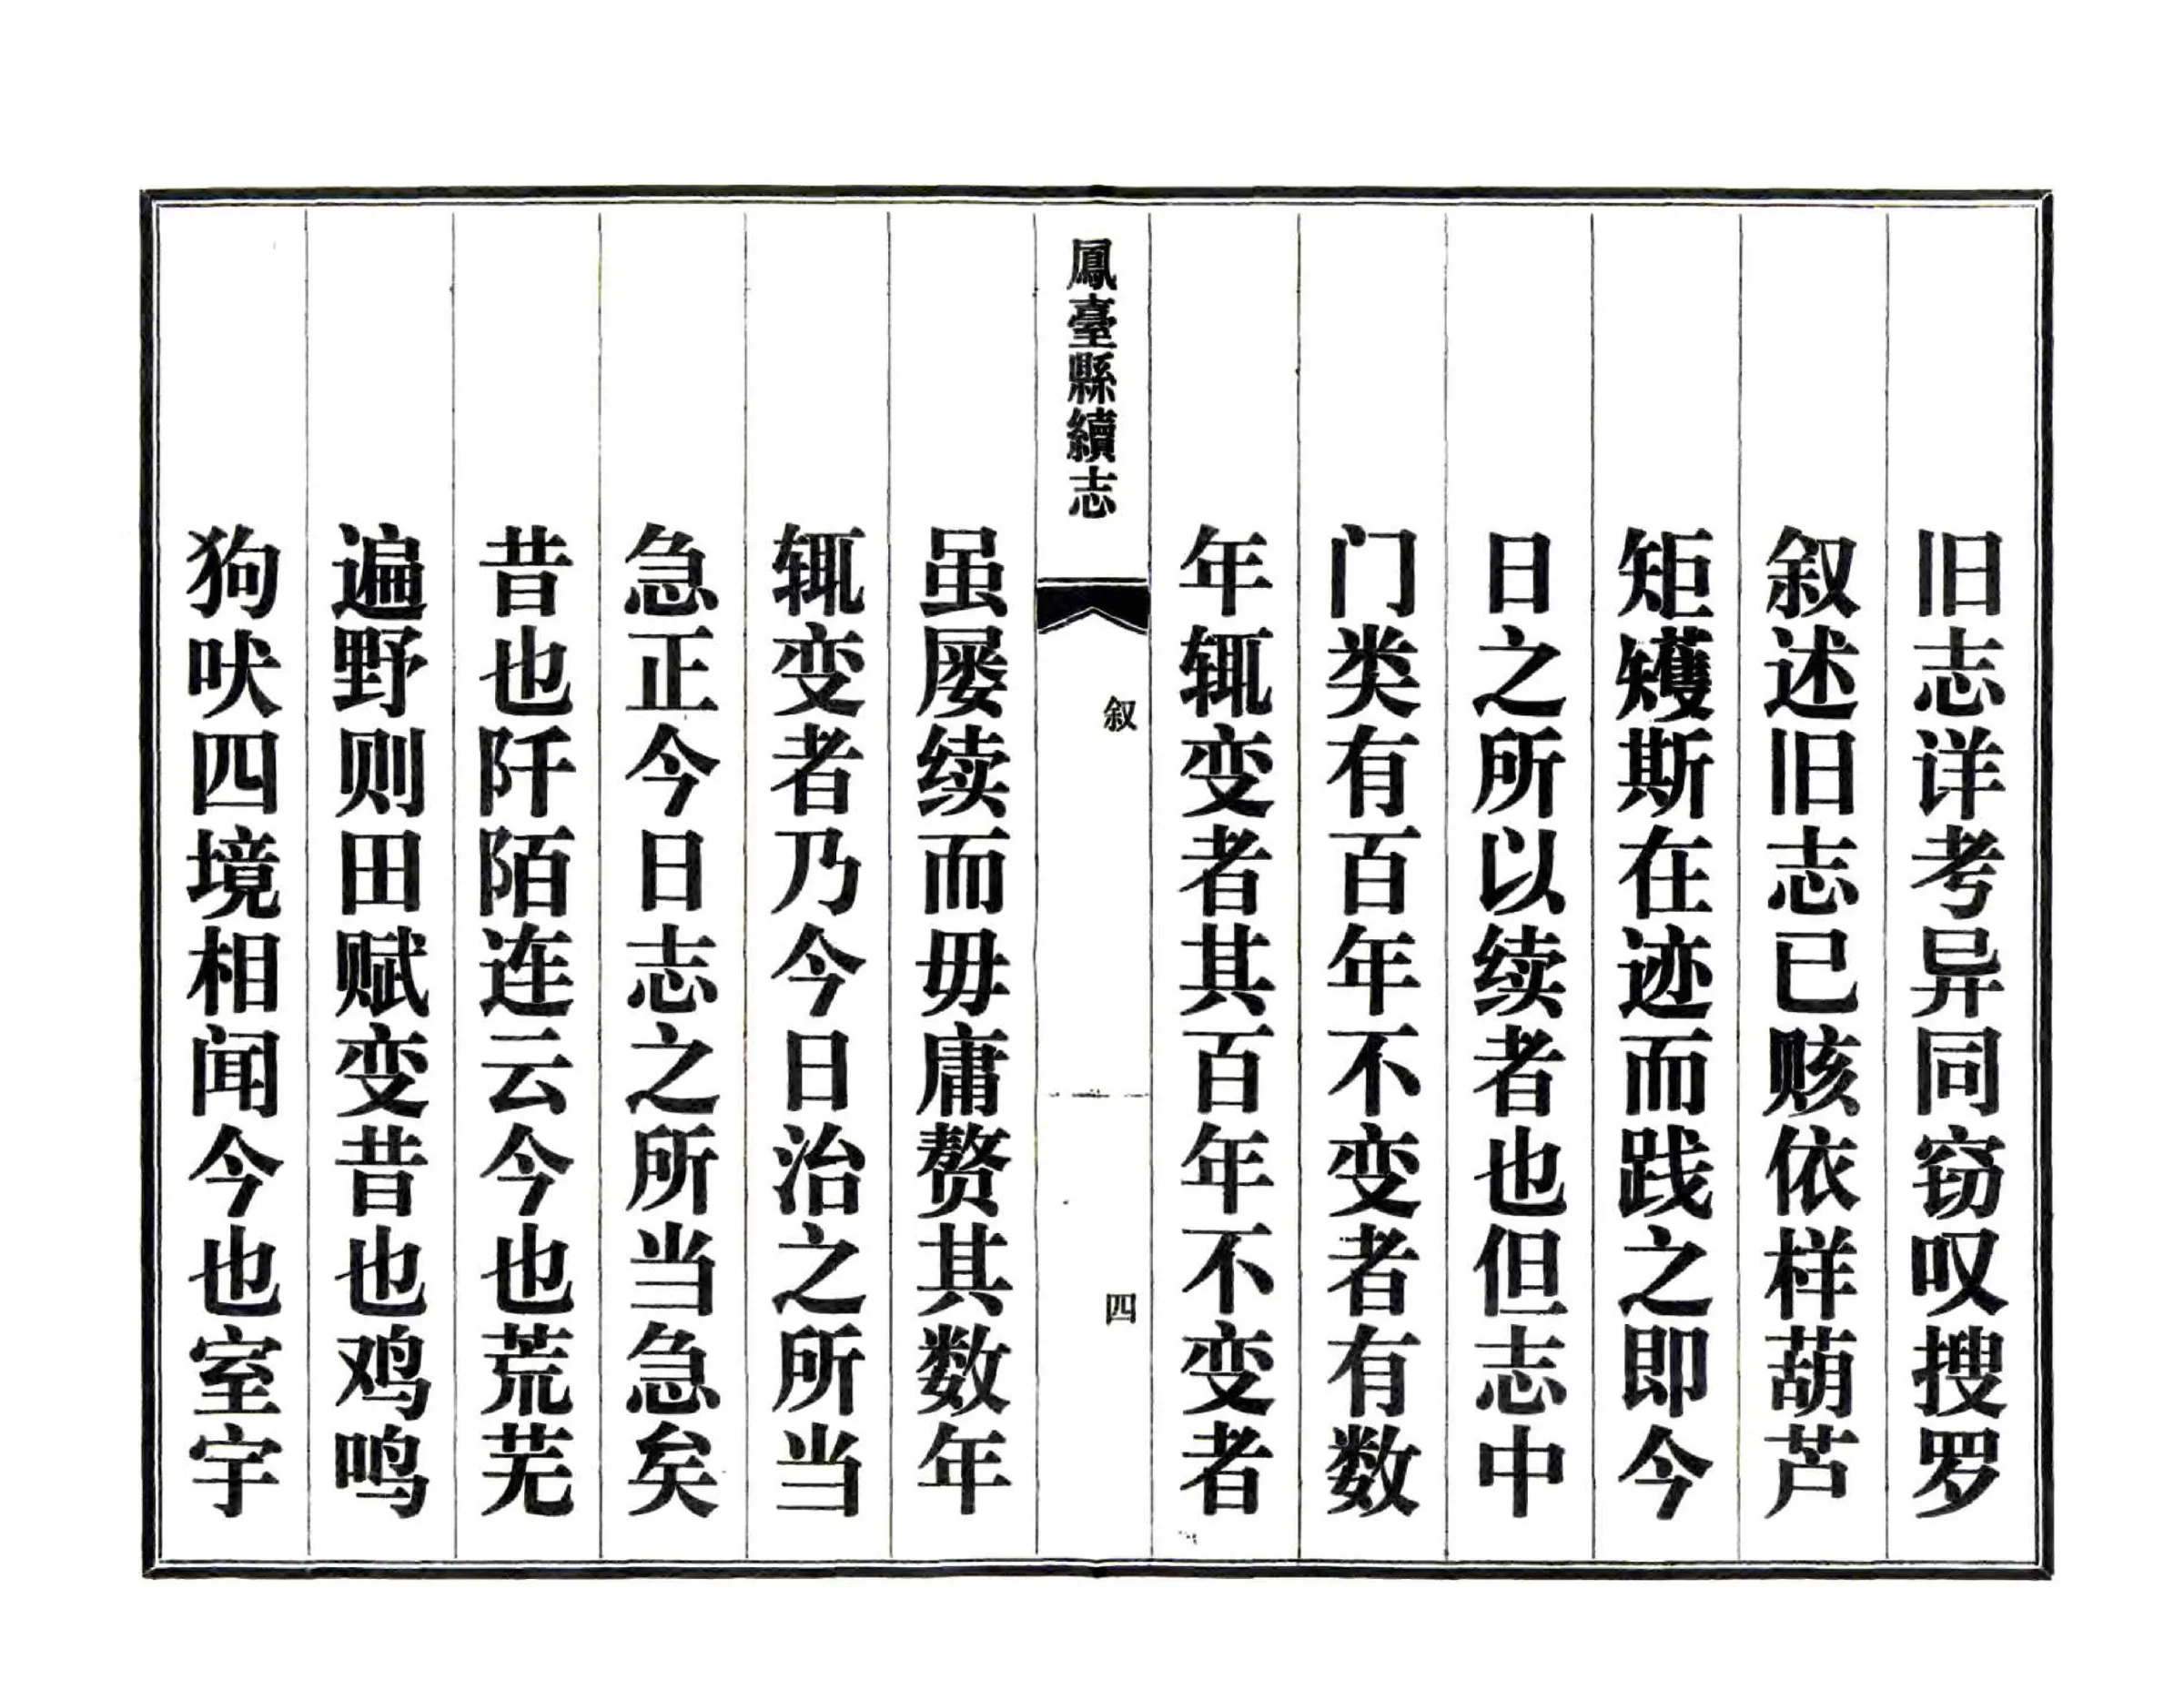 旧志详考异同窃叹搜罗
叙述旧志已赅依样葫芦
矩矱斯在迹而践之即今
日之所以续者也但志中
门类有百年不变者有数
年辄变者其百年不变者
鳳臺縣續志
叙
四
虽屡续而毋庸赘其数年
辄变者乃今日治之所当
急正今日志之所当急矣
昔也阡陌连云今也荒芜
遍野则田赋变昔也鸡鸣
狗吠四境相闻今也室宇